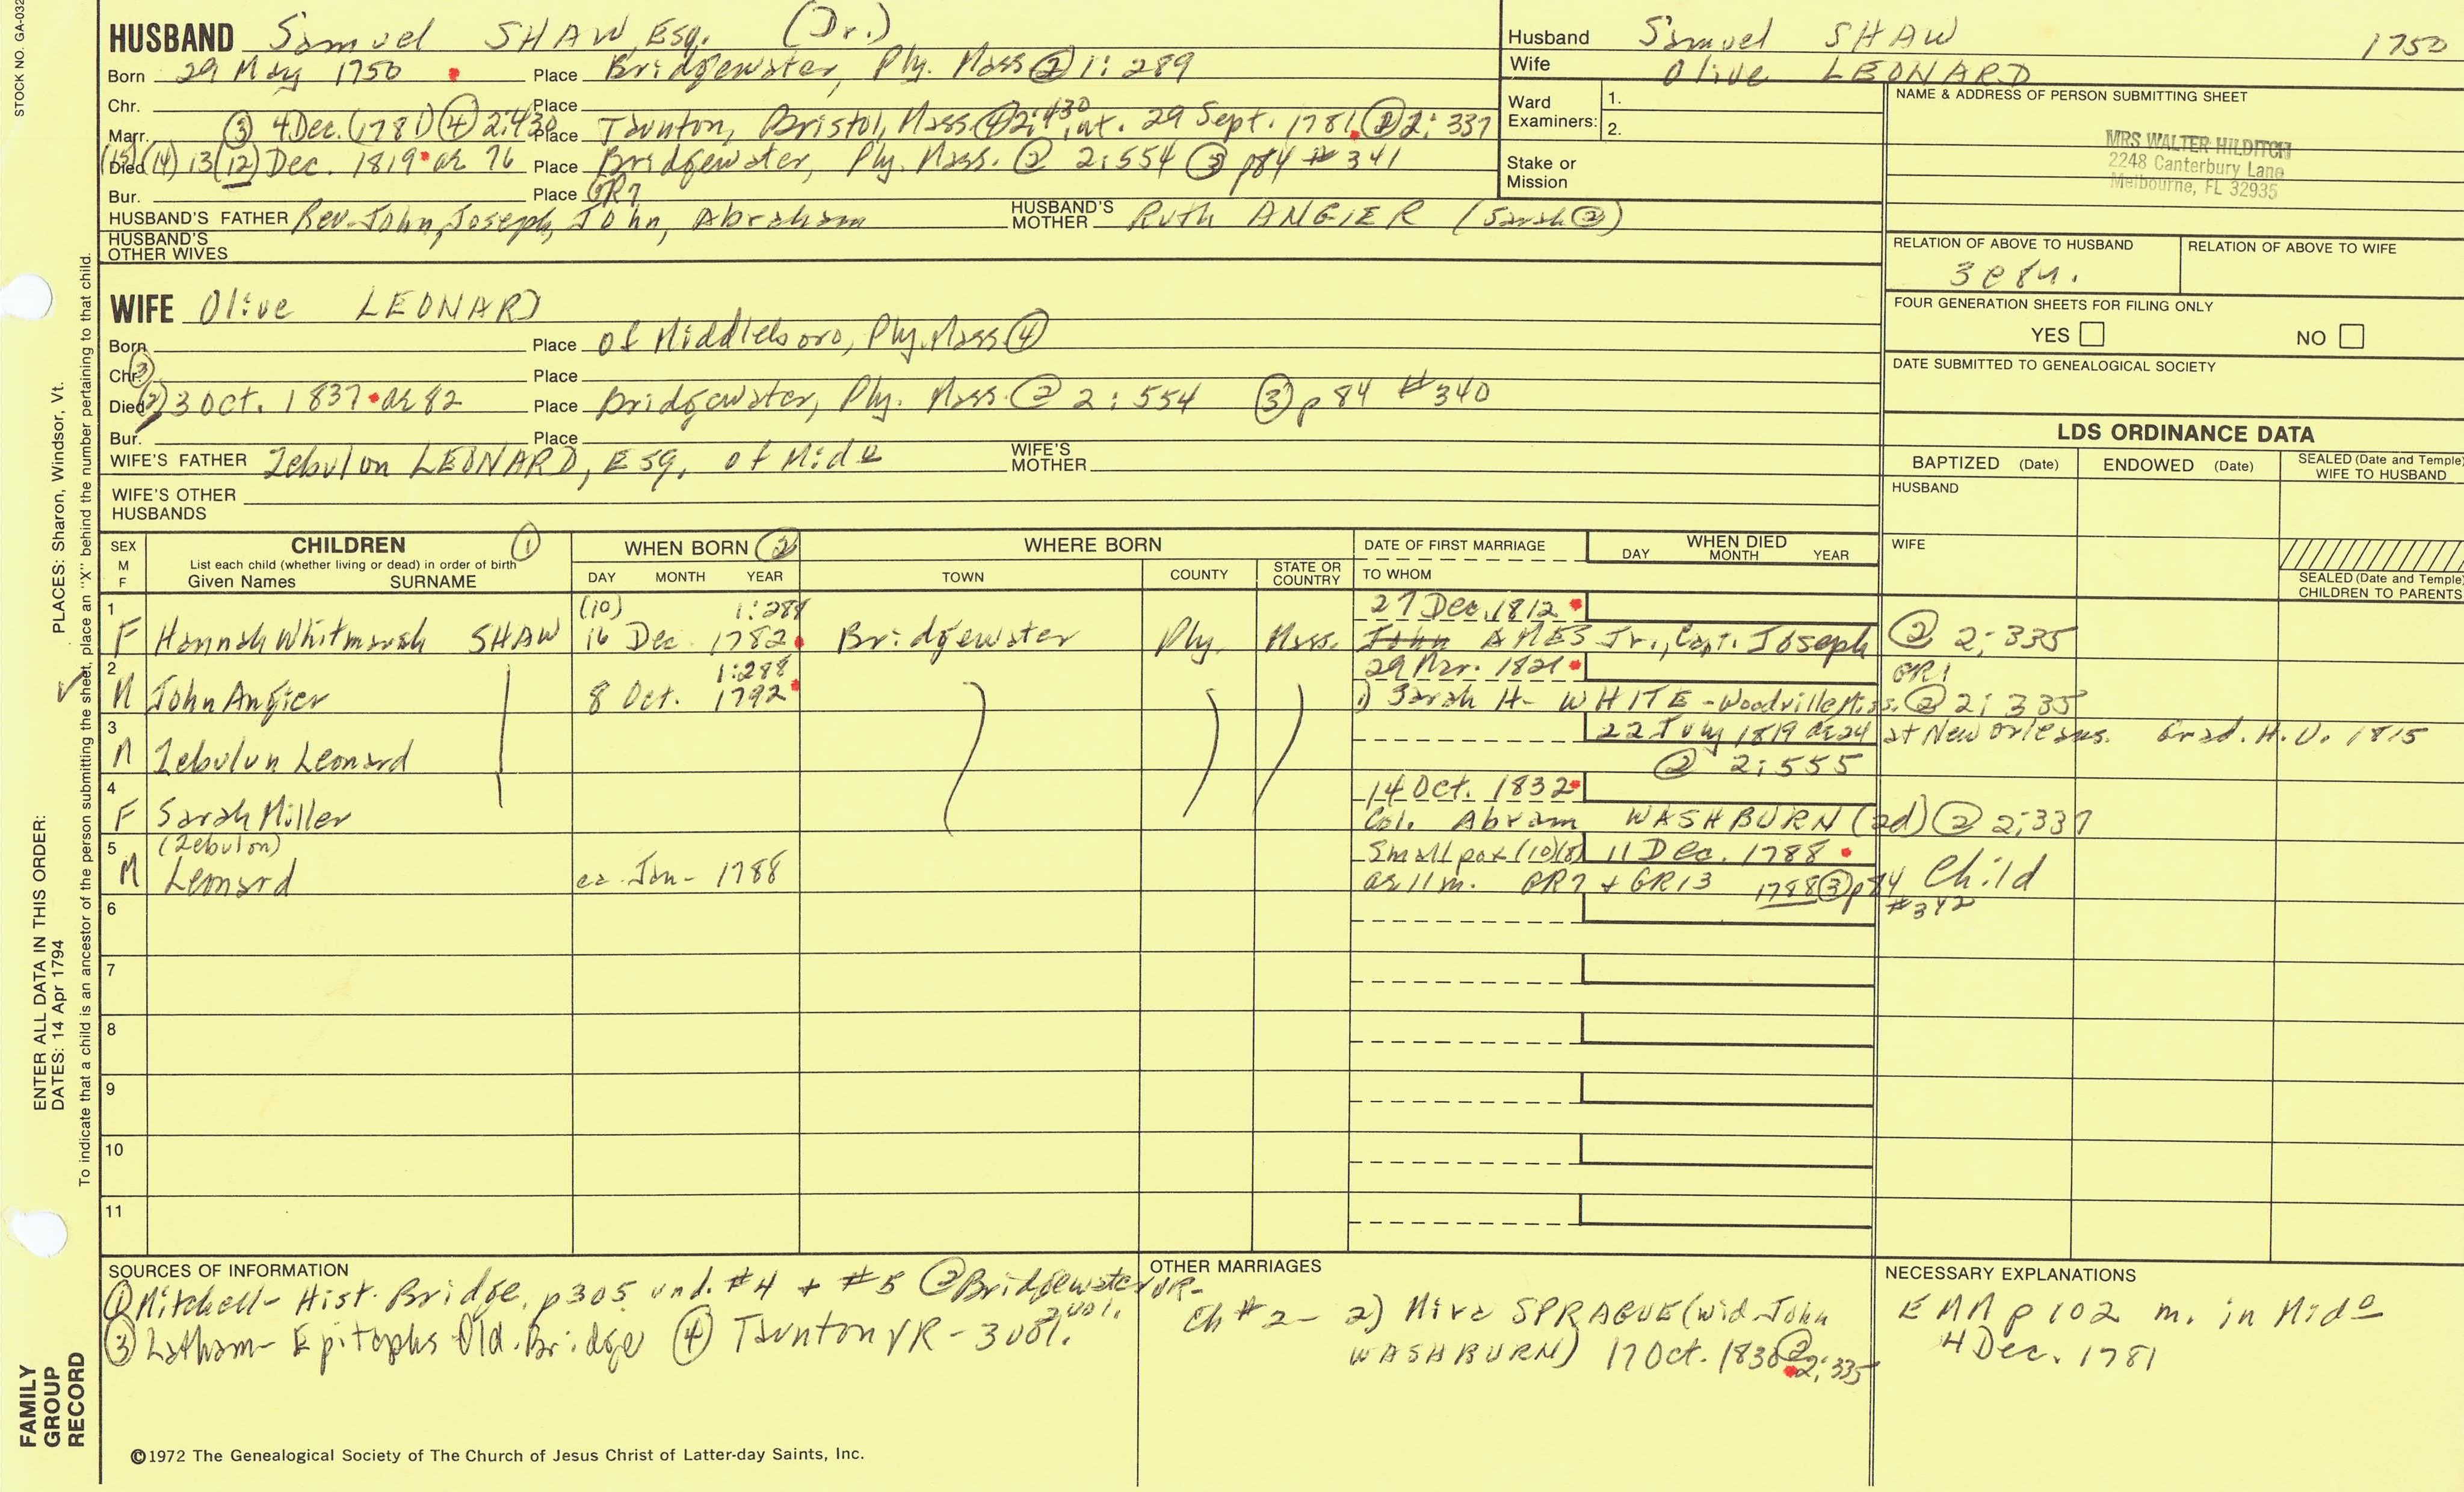 STOCK NO. GA-032
HUSBAND Samuel SHAW, Esq. (Dr.)
Born 29 May 1750 Place Bridgewater, Ply. Mass ② 1: 289
Chr. Place
Marr. ③ 4 Dec. (1781) ④ 2:430 Place Taunton, Bristol, Mass ④ 2:430, int. 29 Sept. 1781 ② 2: 337
Died (14) 13 (12) Dec. 1819 ae 76 Place Bridgewater, Ply. Mass. ② 2:554 ③ p84 #341
Bur. Place GR7
HUSBAND'S FATHER Rev. John, Joseph, John, Abraham HUSBAND'S MOTHER Ruth ANGIER (Sarah ②)
HUSBAND'S OTHER WIVES
Husband Samuel SHAW 1750
Wife Olive LEONARD
Ward Examiners: 1.
2.
Stake or Mission
NAME & ADDRESS OF PERSON SUBMITTING SHEET
MRS WALTER HILDITCH
2248 Canterbury Lane
Melbourne, FL 32935
RELATION OF ABOVE TO HUSBAND RELATION OF ABOVE TO WIFE
FOUR GENERATION SHEETS FOR FILING ONLY
YES NO
DATE SUBMITTED TO GENEALOGICAL SOCIETY
WIFE Olive LEONARD
Born Place of Middleboro, Ply. Mass ④
Chr. ③ Place
Died ② 3 Oct. 1837 ae 82 Place Bridgewater, Ply. Mass. ② 2: 554 ③ p 84 #340
Bur. Place
WIFE'S FATHER Zebulon LEONARD, Esq. of Mido WIFE'S MOTHER
WIFE'S OTHER HUSBANDS
LDS ORDINANCE DATA
BAPTIZED (Date) ENDOWED (Date) SEALED (Date and Temple) WIFE TO HUSBAND
HUSBAND
WIFE
SEALED (Date and Temple) CHILDREN TO PARENTS
SEX M F CHILDREN ① WHEN BORN ② WHERE BORN DATE OF FIRST MARRIAGE WHEN DIED
List each child (whether living or dead) in order of birth
Given Names SURNAME DAY MONTH YEAR TOWN COUNTY STATE OR COUNTRY TO WHOM DAY MONTH YEAR
1 (10) 1:288 27 Dec. 1812
F Hannah Whitmarsh SHAW 16 Dec. 1782 Bridgewater Ply. Mass. John AMES Jr., Capt. Joseph ② 2:335
2 1:288 29 Mar. 1821 GR1
M John Angier 8 Oct. 1792 1) Sarah H. WHITE - Woodville Miss. ② 2: 335
3 22 July 1819 ae 24 at New Orleans. Grad. H.U. 1815
M Zebulun Leonard ② 2:555
4 14 Oct. 1832
F Sarah Miller Col. Abram WASHBURN (2d) ② 2:337
5 (Zebulon) Smallpox (10)(8) 11 Dec. 1788
M Leonard ca. Jan- 1788 ae 11 m. GR7 + GR13 1788 ③ p84 Child
#342
6
7
8
9
10
11
SOURCES OF INFORMATION
① Mitchell- Hist. Bridge. p305 und. #4 + #5 ② Bridgewater VR- 2 vol.
③ Latham- Epitaphs Old. Bridge ④ Taunton VR - 3 vol.
©1972 The Genealogical Society of The Church of Jesus Christ of Latter-day Saints, Inc.
OTHER MARRIAGES
Ch #2- 2) Mira SPRAGUE (wid. John
WASHBURN) 17 Oct. 1830 ② 2:335
NECESSARY EXPLANATIONS
EMM p 102 m. in Mido
4 Dec. 1781
PLACES: Sharon, Windsor, Vt.
ENTER ALL DATA IN THIS ORDER:
DATES: 14 Apr 1794
To indicate that a child is an ancestor of the person submitting the sheet, place an "X" behind the number pertaining to that child.
FAMILY GROUP RECORD